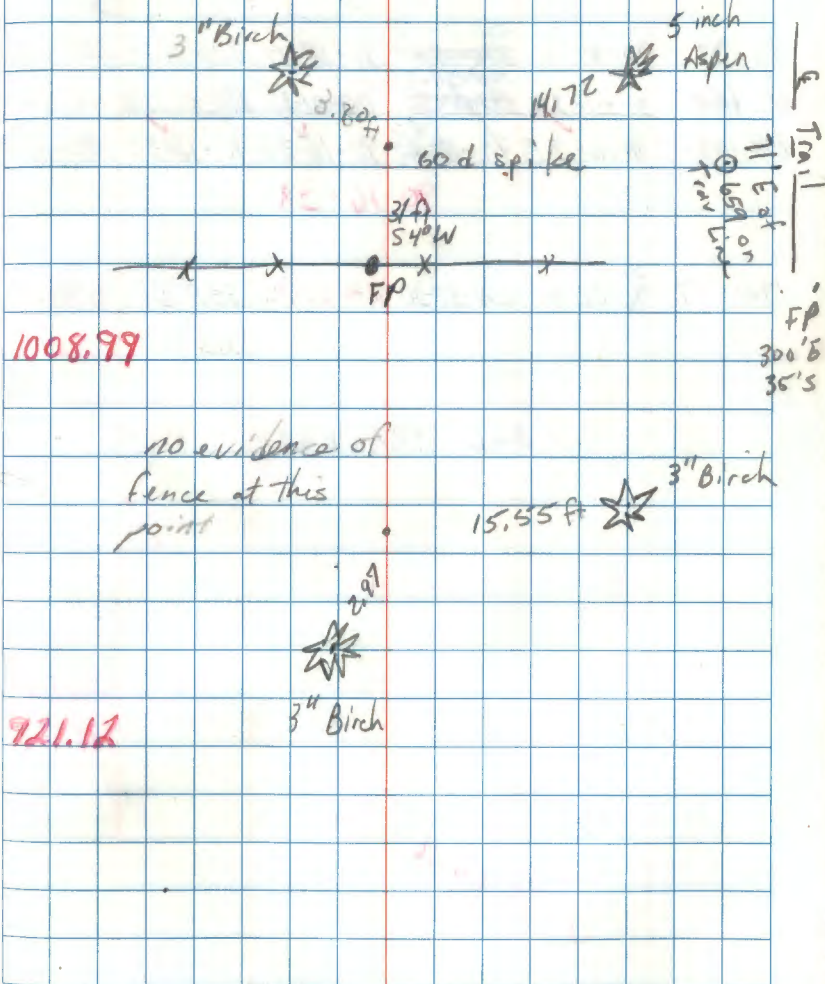 3" Birch
5 inch
Aspen
14.72
60d spike
31 ft
S4°W
FP
℄ Trail
71' E of
659 on
Trav Line
FP
300'E
35'S
1008.99
no evidence of
fence at this
point
15.55 ft
3" Birch
2.97
3" Birch
921.12